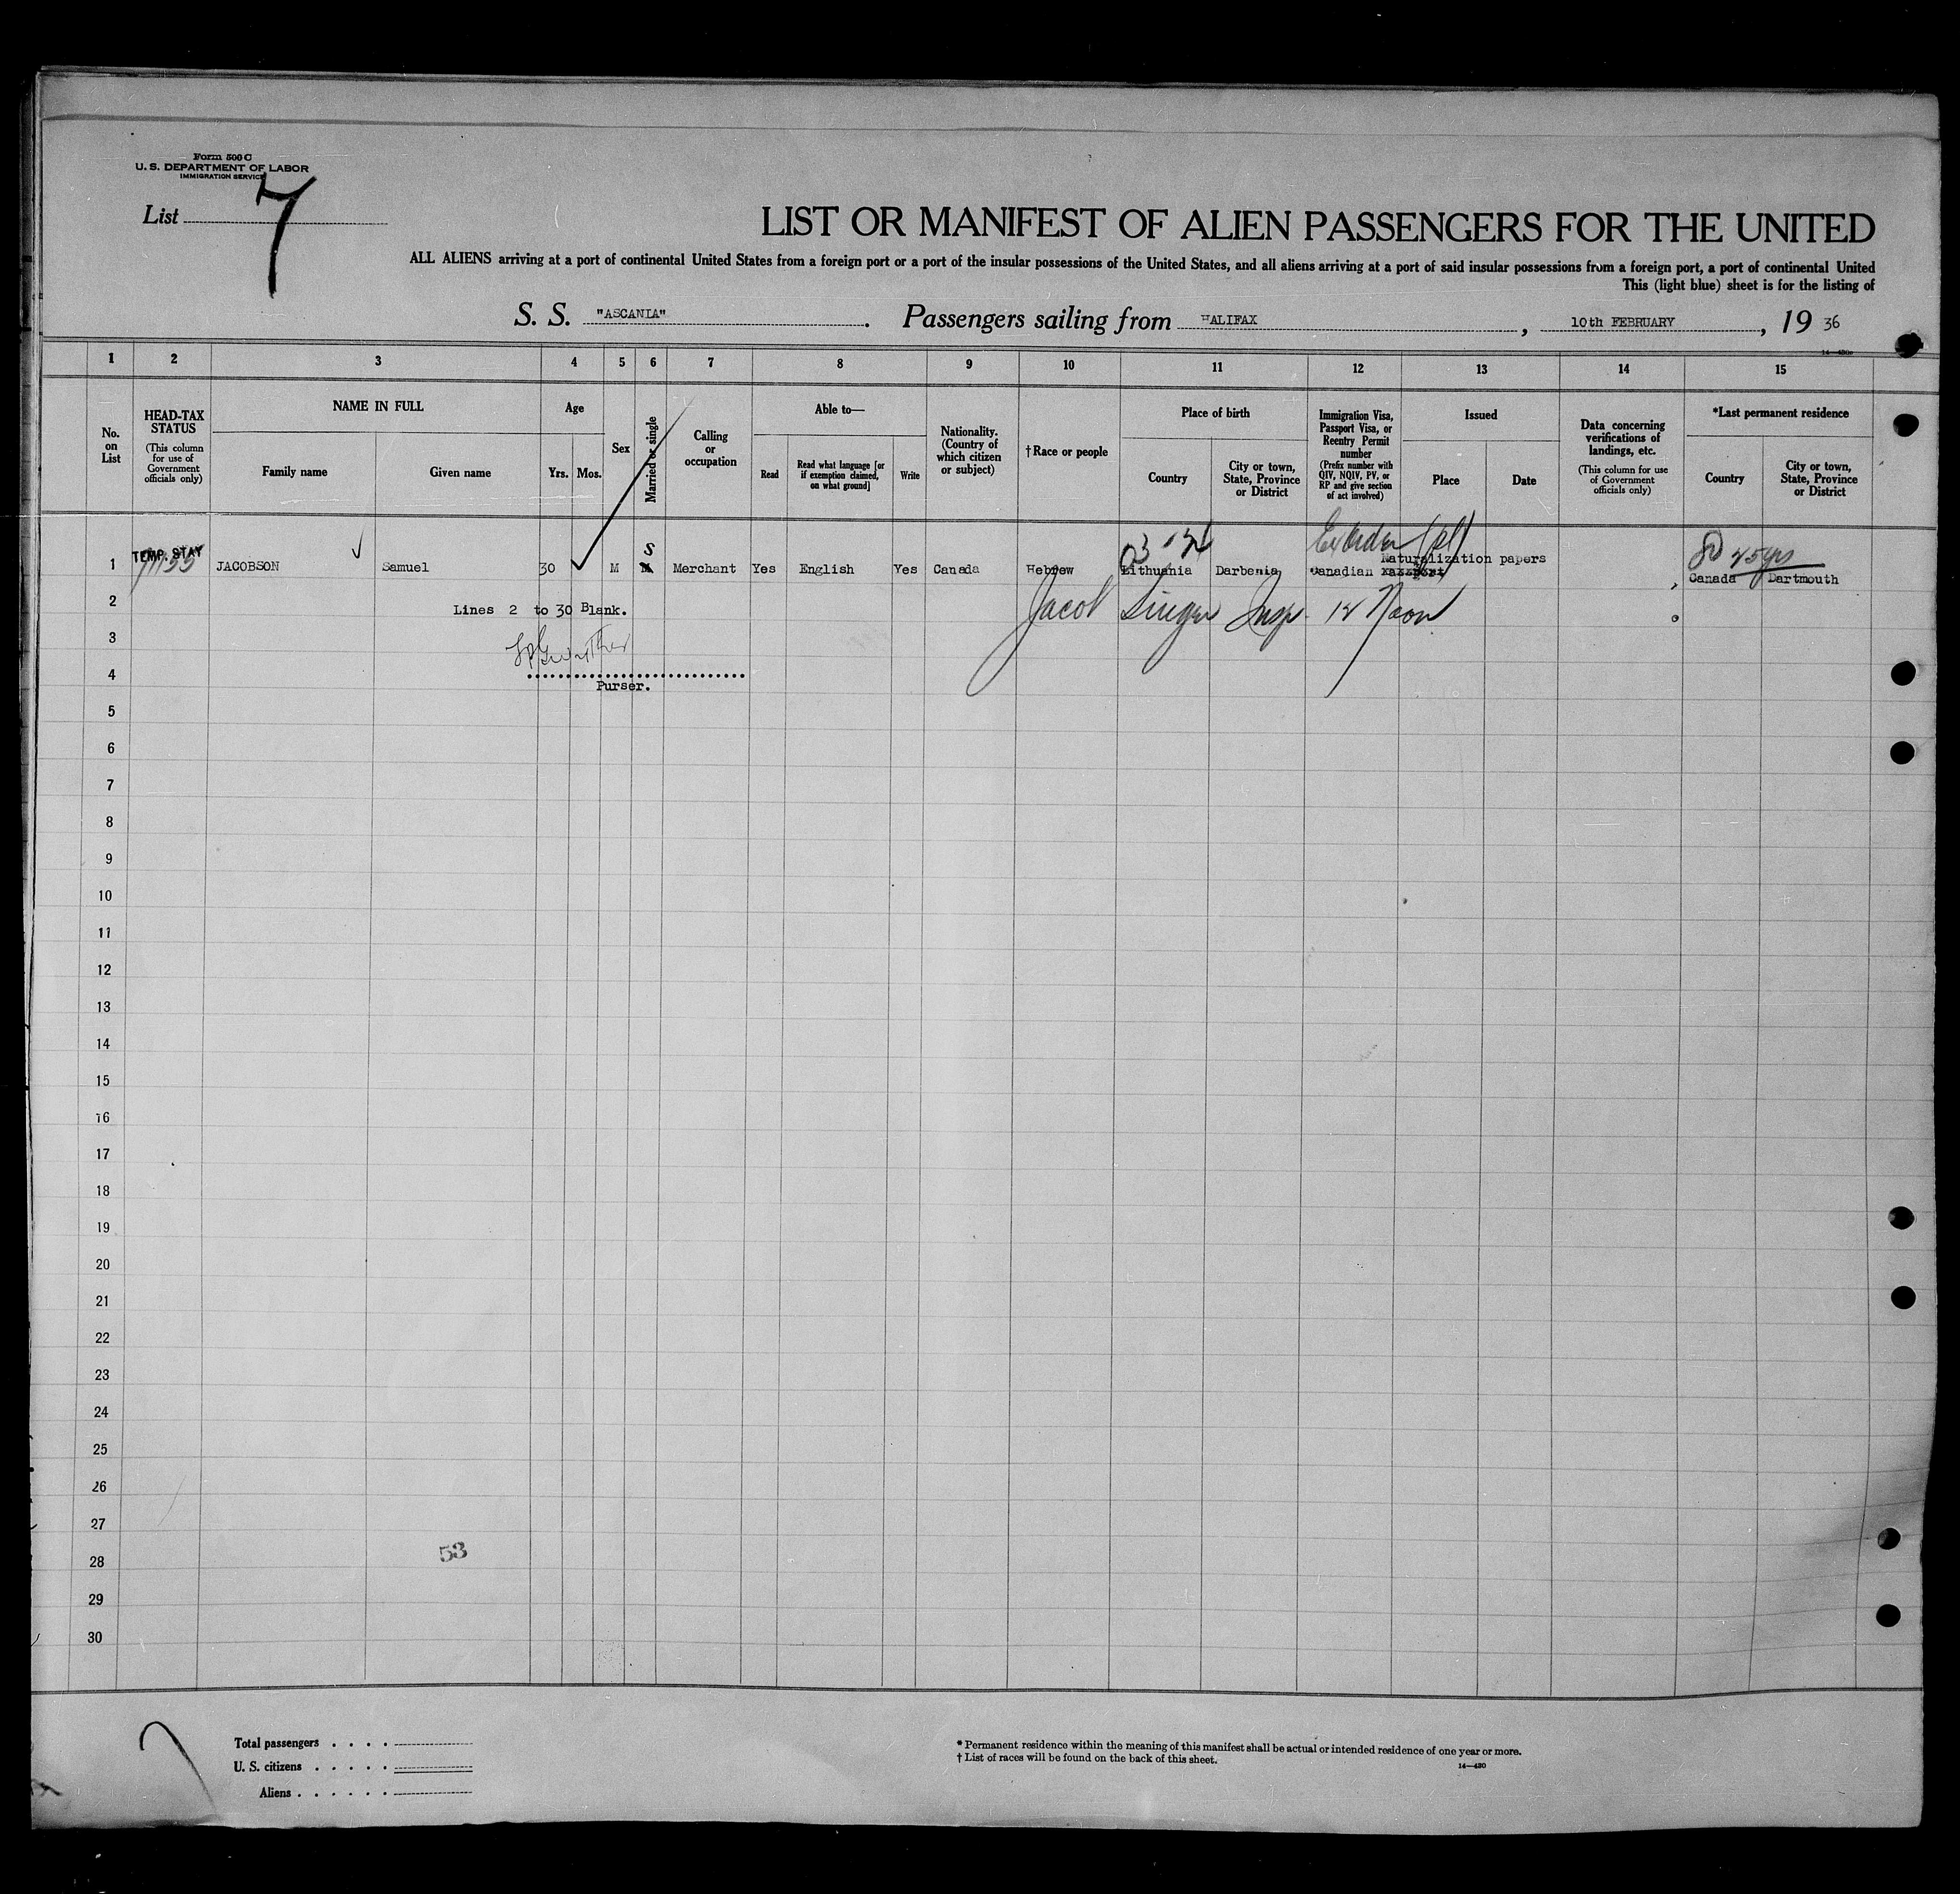 Form 500 C
U. S. DEPARTMENT OF LABOR
IMMIGRATION SERVICE
List 7
LIST OR MANIFEST OF ALIEN PASSENGERS FOR THE UNITED
ALL ALIENS arriving at a port of continental United States from a foreign port or a port of the insular possessions of the United States, and all aliens arriving at a port of said insular possessions from a foreign port, a port of continental United
This (light blue) sheet is for the listing of
S. S. "ASCANIA". Passengers sailing from HALIFAX, 10th FEBRUARY, 19 36
14—430
1 2 3 4 5 6 7 8 9 10 11 12 13 14 15
No. on List
HEAD-TAX STATUS (This column for use of Government officials only)
NAME IN FULL
Family name Given name
Age
Yrs. Mos.
Sex
Married or single
Calling or occupation
Able to—
Read Read what language [or if exemption claimed, on what ground] Write
Nationality. (Country of which citizen or subject)
†Race or people
Place of birth
Country City or town, State, Province or District
Immigration Visa, Passport Visa, or Reentry Permit number (Prefix number with QIV, NQIV, PV, or RP and give section of act involved)
Issued
Place Date
Data concerning verifications of landings, etc. (This column for use of Government officials only)
*Last permanent residence
Country City or town, State, Province or District
TEMP. STAY S Naturalization papers
1 JACOBSON Samuel 30 M Merchant Yes English Yes Canada Hebrew Lithuania Darbenia Canadian Canada Dartmouth
2 Lines 2 to 30 Blank. Jacob Singer Insp. 12 Noon
3
4
Purser.
5
6
7
8
9
10
11
12
13
14
15
16
17
18
19
20
21
22
23
24
25
26
27
53
28
29
30
Total passengers
U. S. citizens
Aliens
* Permanent residence within the meaning of this manifest shall be actual or intended residence of one year or more.
† List of races will be found on the back of this sheet.
14—430